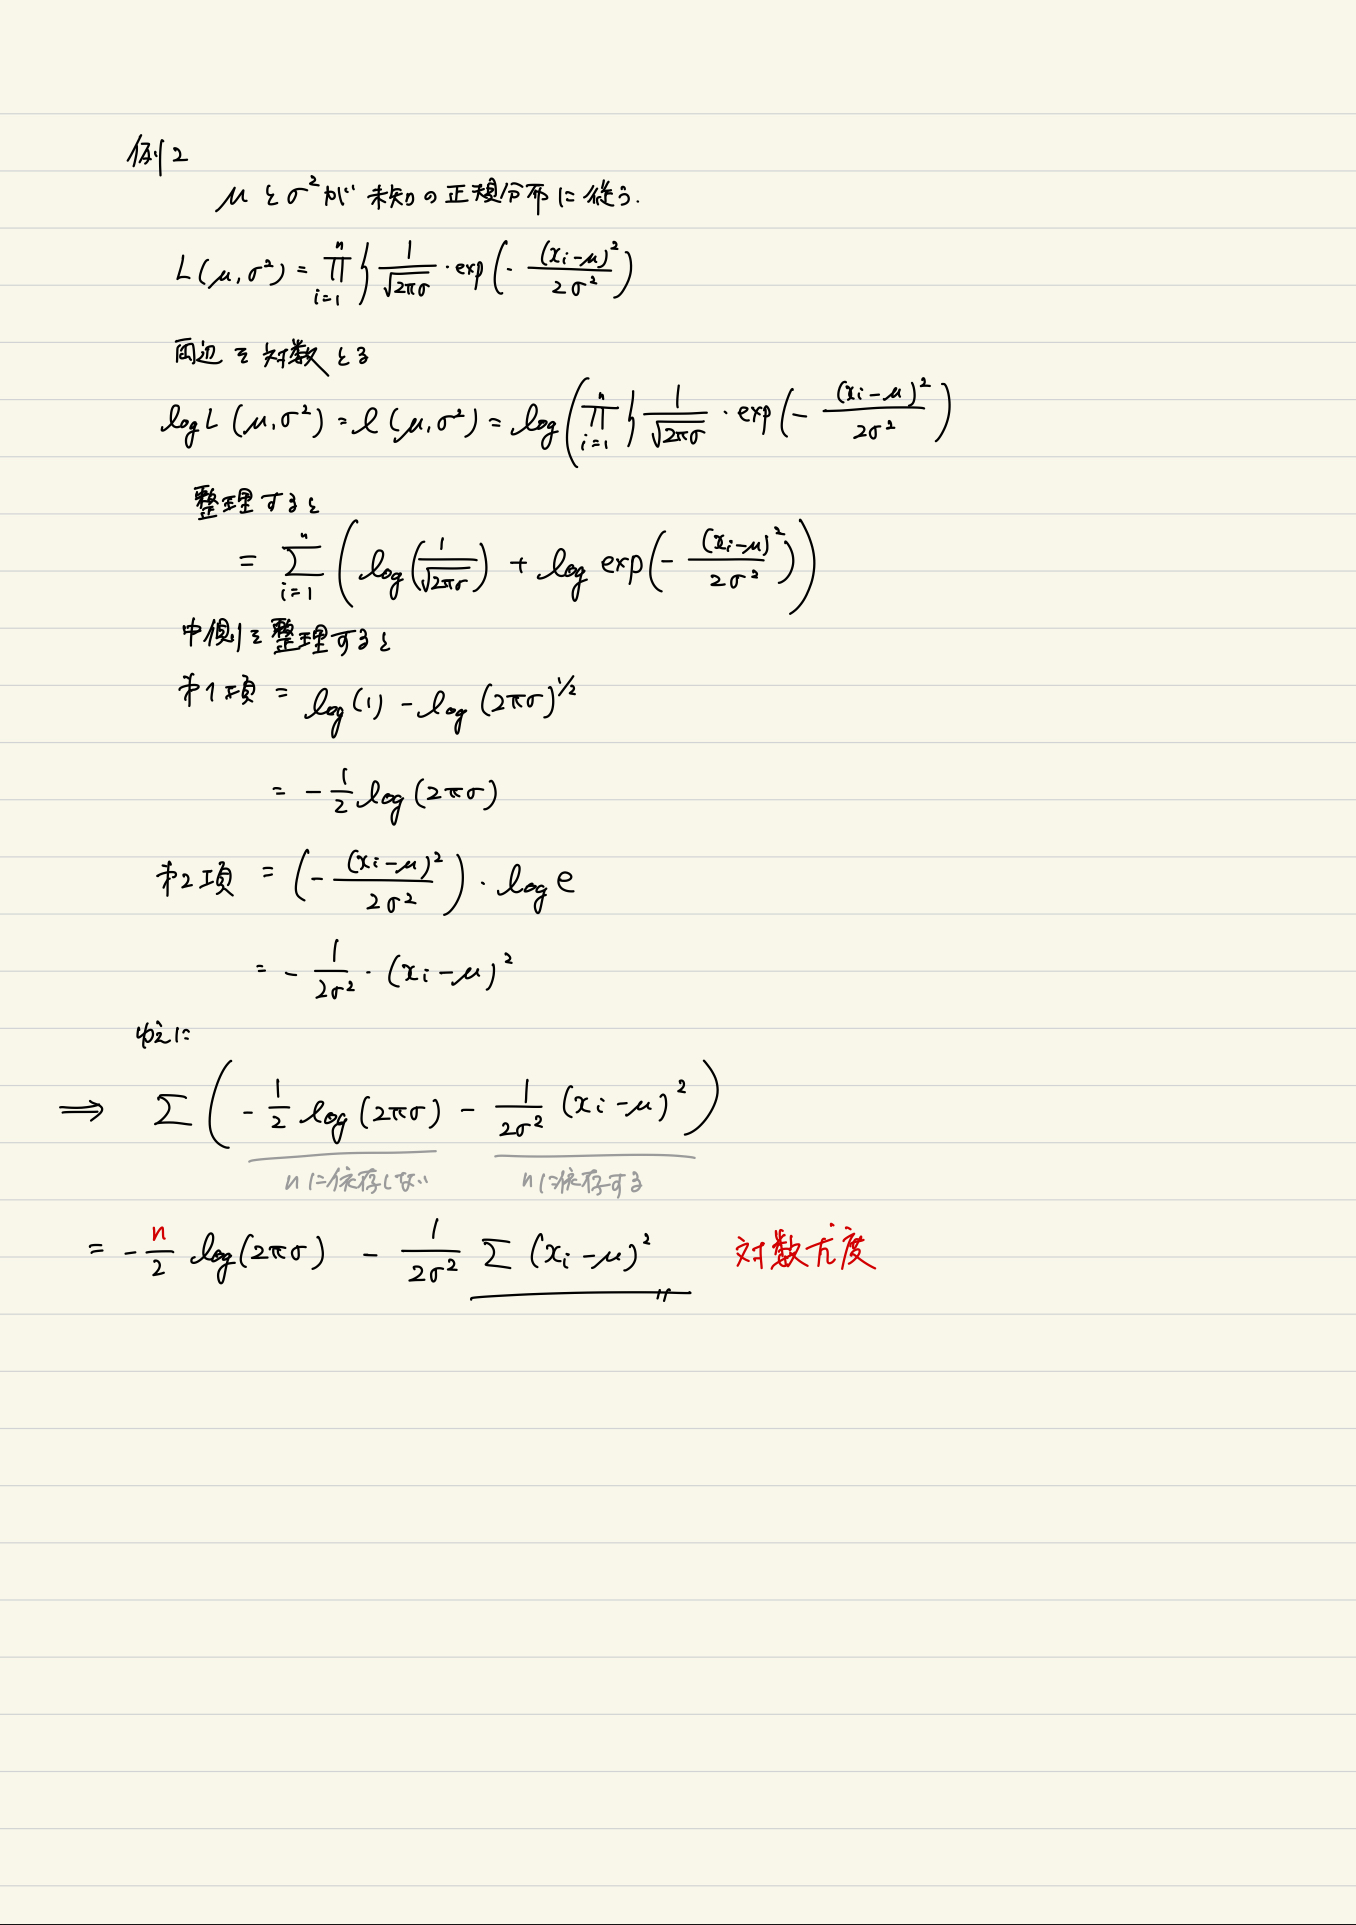 例2
μとσ²が未知の正規分布に従う.
L(μ,σ²) = ∏_{i=1}^{n} } 1/√(2πσ) · exp(- (xi-μ)²/2σ²)
両辺を対数とる
log L(μ,σ²) = l(μ,σ²) = log( ∏_{i=1}^{n} } 1/√(2πσ) · exp(- (xi-μ)²/2σ²)
整理すると
= ∑_{i=1}^{n} ( log(1/√(2πσ)) + log exp(- (xi-μ)²/2σ²) )
中側を整理すると
第1項 = log(1) - log(2πσ)^{1/2}
= - 1/2 log(2πσ)
第2項 = (- (xi-μ)²/2σ²) · log e
= - 1/2σ² · (xi-μ)²
ゆえに
⟹ ∑ ( - 1/2 log(2πσ) - 1/2σ² (xi-μ)² )
nに依存しない nに依存する
= - n/2 log(2πσ) - 1/2σ² ∑ (xi-μ)² 対数尤度